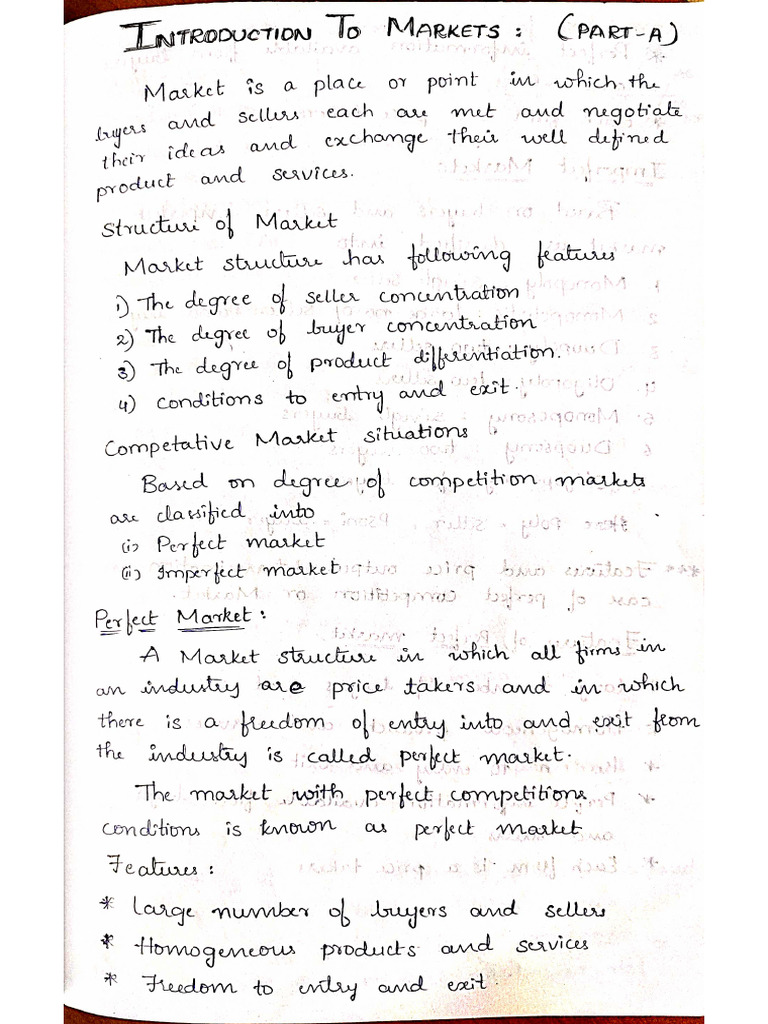 INTRODUCTION TO MARKETS: (PART-A)
Market is a place or point in which the
buyers and sellers each are met and negotiate
their ideas and exchange their well defined
product and services.
Structure of Market
Market structure has following features
1) The degree of seller concentration
2) The degree of buyer concentration
3) The degree of product differentiation.
4) conditions to entry and exit.
Competative Market situations
Based on degree of competition markets
are classified into
(i) Perfect market
(ii) Imperfect market
Perfect Market:
A Market structure in which all firms in
an industry are price takers and in which
there is a freedom of entry into and exit from
the industry is called perfect market.
The market with perfect competitions
conditions is known as perfect market
Features:
* Large number of buyers and sellers
* Homogeneous products and services
* Freedom to entry and exit.